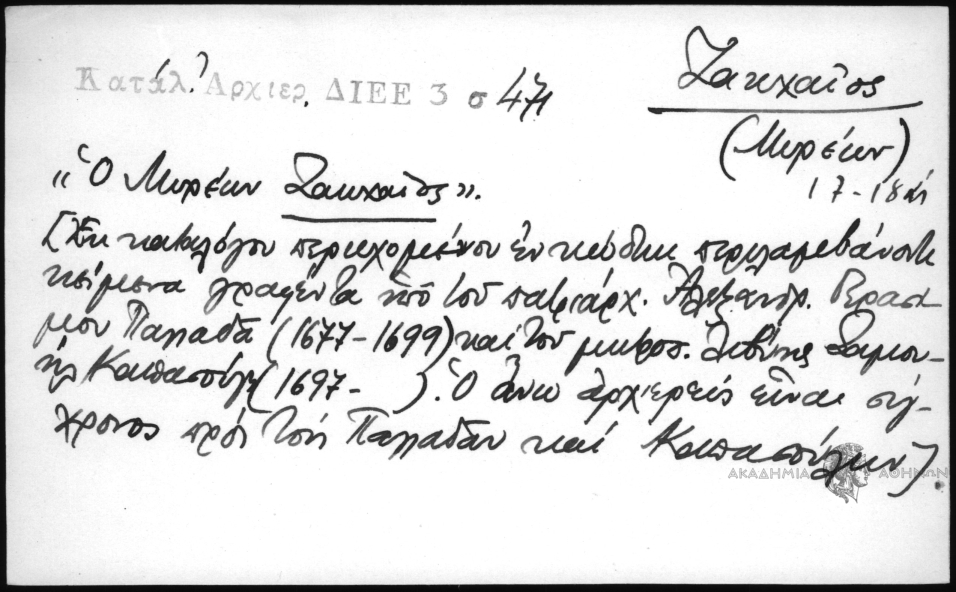 Κατάλ. Ἀρχιερ. ΔΙΕΕ 3 σ 471
Ζακχαῖος
(Μυρέων)
17-18 αἰ
«Ὁ Μυρέων Ζακχαῖος».
[Ἐκ καταλόγου περιεχομένου ἐν κώδικι περιλαμβάνοντι
κείμενα γραφέντα ὑπὸ τοῦ πατριάρχ. Ἀλεξανδρ. Γερασί-
μου Παλλαδᾶ (1677-1699) καὶ τοῦ μητροπ. Λιβύης Σαμου-
ὴλ Καπασούλη (1697-    ). Ὁ ἄνω ἀρχιερεὺς εἶναι σύγ-
χρονος πρὸς τὸν Παλλαδᾶν καὶ Καπασούλην].
ΑΚΑΔΗΜΙΑ ΑΘΗΝΩΝ